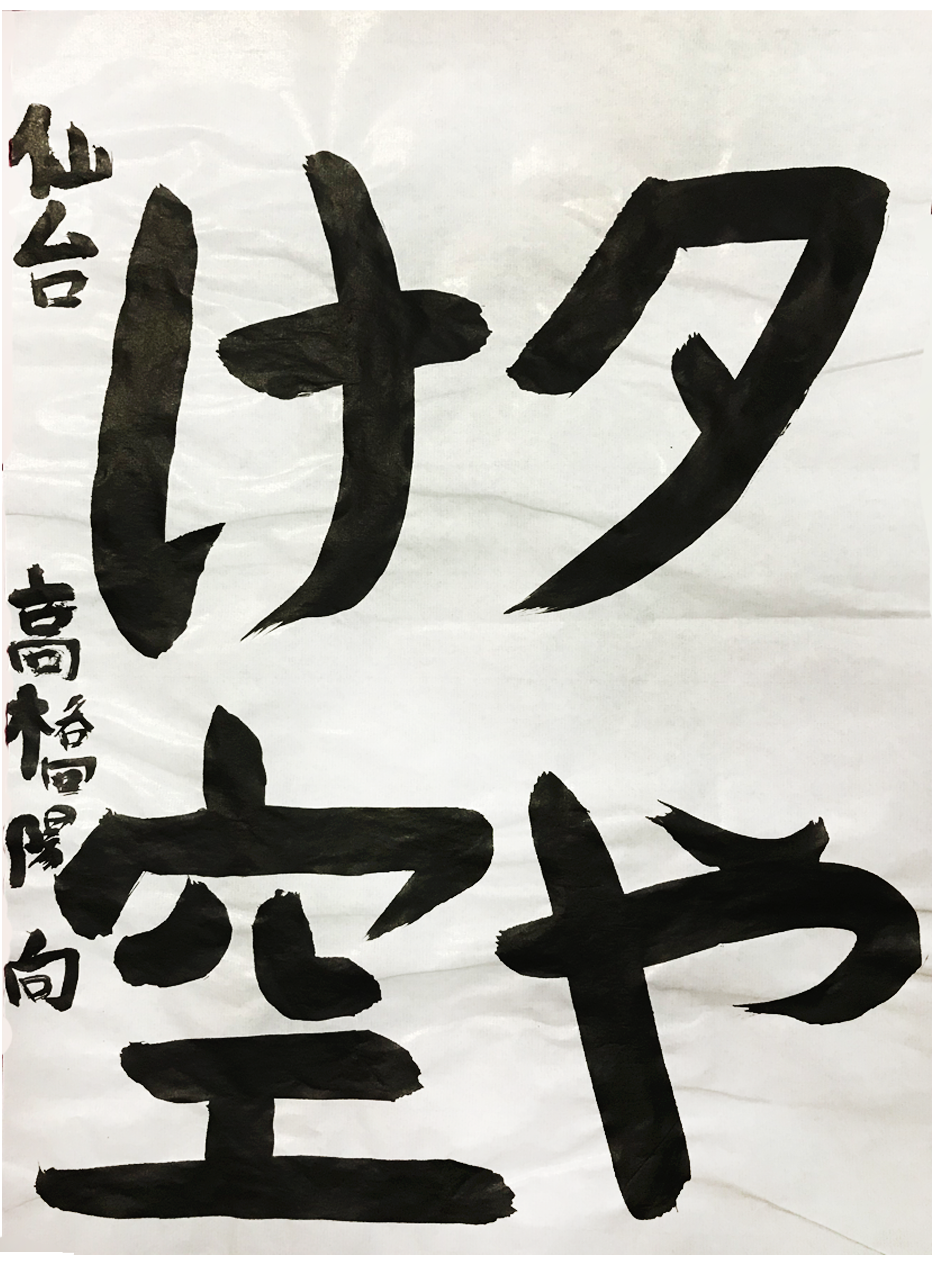 夕や
け空
仙台 高橋陽向